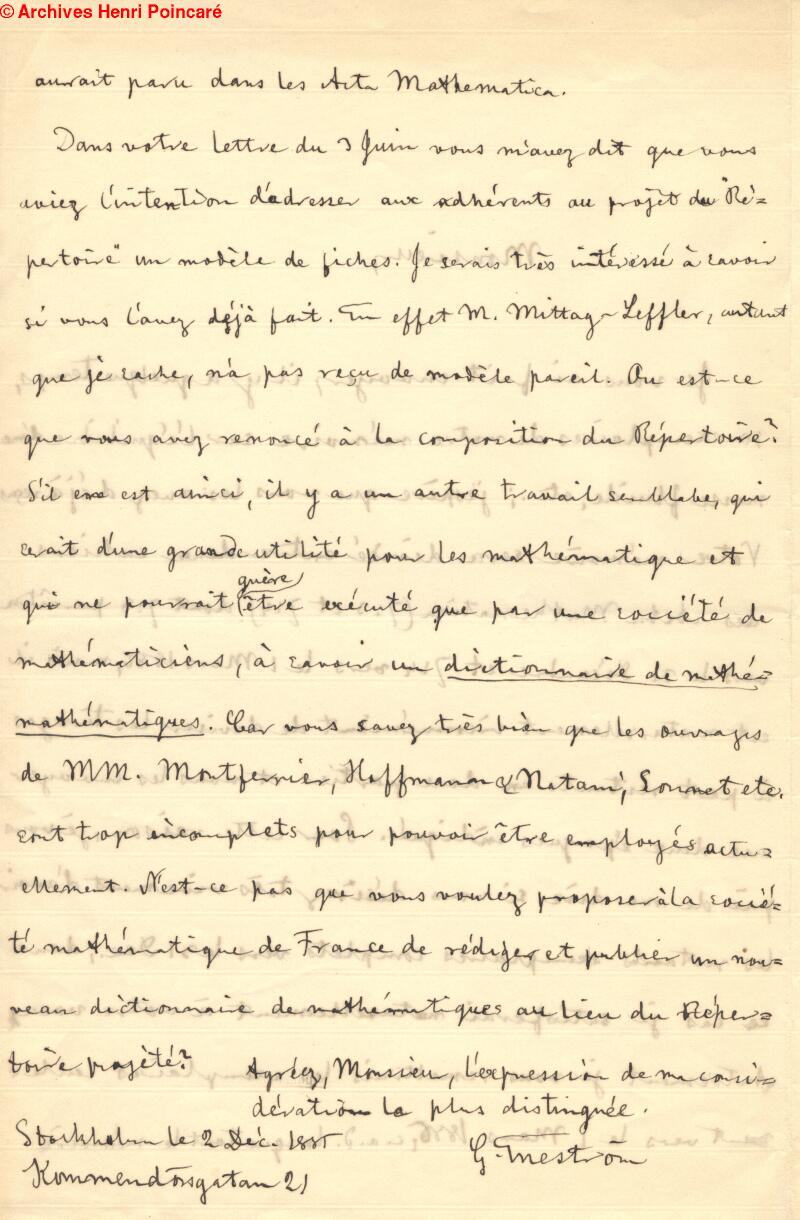 © Archives Henri Poincaré
aurait paru dans les Acta Mathematica.
Dans votre lettre du 3 Juin vous m'avez dit que vous
aviez l'intention d'adresser aux adhérents au projet du "Ré-
pertoire" un modèle de fiches. Je serais très intéressé à savoir
si vous l'avez déjà fait. En effet M. Mittag-Leffler, autant
que je sache, n'a pas reçu de modèle pareil. Ou est-ce
que vous avez renoncé à la composition du Répertoire?
S'il en est ainci, il y a un autre travail semblabe, qui
serait d'une grande utilité pour les mathématique et
qui ne pourrait guère être exécuté que par une société de
mathématiciens, à savoir un dictionnaire de mathé-
mathématiques. Car vous savez très bien que les ouvrages
de MM. Montferrier, Hoffmann & Natani, Sonnet etc.
sont trop incomplets pour pouvoir être employés actu-
ellement. N'est-ce pas que vous voulez proposer à la socié-
té mathématique de France de rédiger et publier un nou-
veau dictionnaire de mathématiques au lieu du Réper-
toire projété? Agréez, Monsieur, l'expression de ma consi-
dération la plus distinguée.
Stockholm le 2 Déc. 1885 G. Eneström
Kommendörsgatan 21